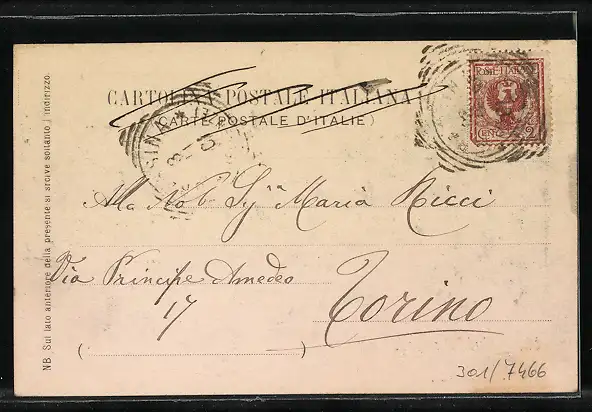 CARTOLINA POSTALE ITALIANA
(CARTE POSTALE D'ITALIE)
POSTE ITAL
CENT 2
Alla Nob. Sig.na Maria Ricci
Via Principe Amedeo
17
Torino
NB. Sul lato anteriore della presente si scrive soltanto l'indirizzo.
301/7466